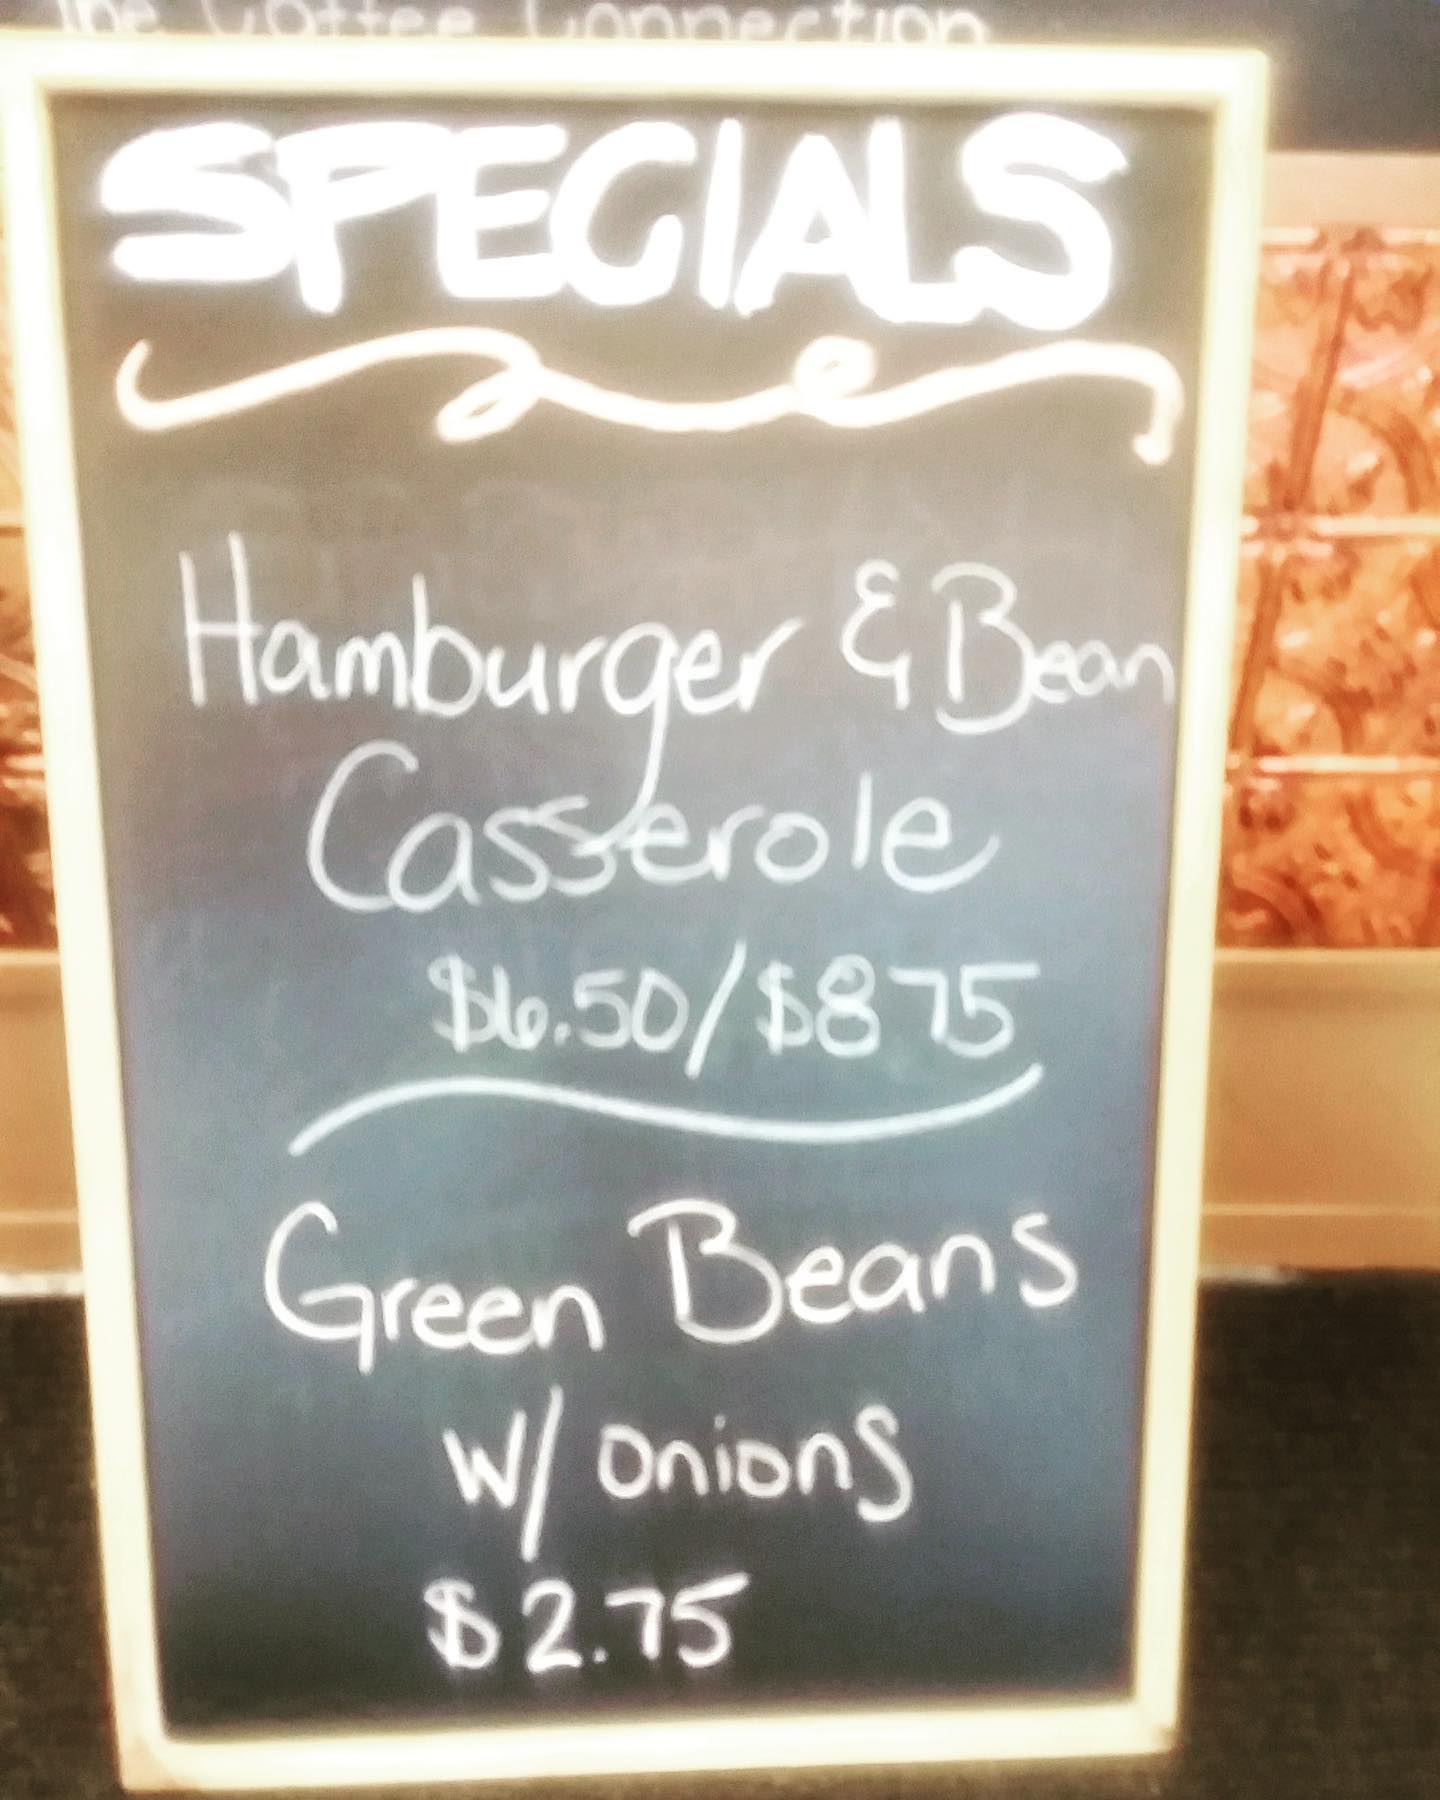 The Coffee Connection
SPECIALS
Hamburger & Bean
Casserole
$6.50/$8 75
Green Beans
w/ onions
$2.75